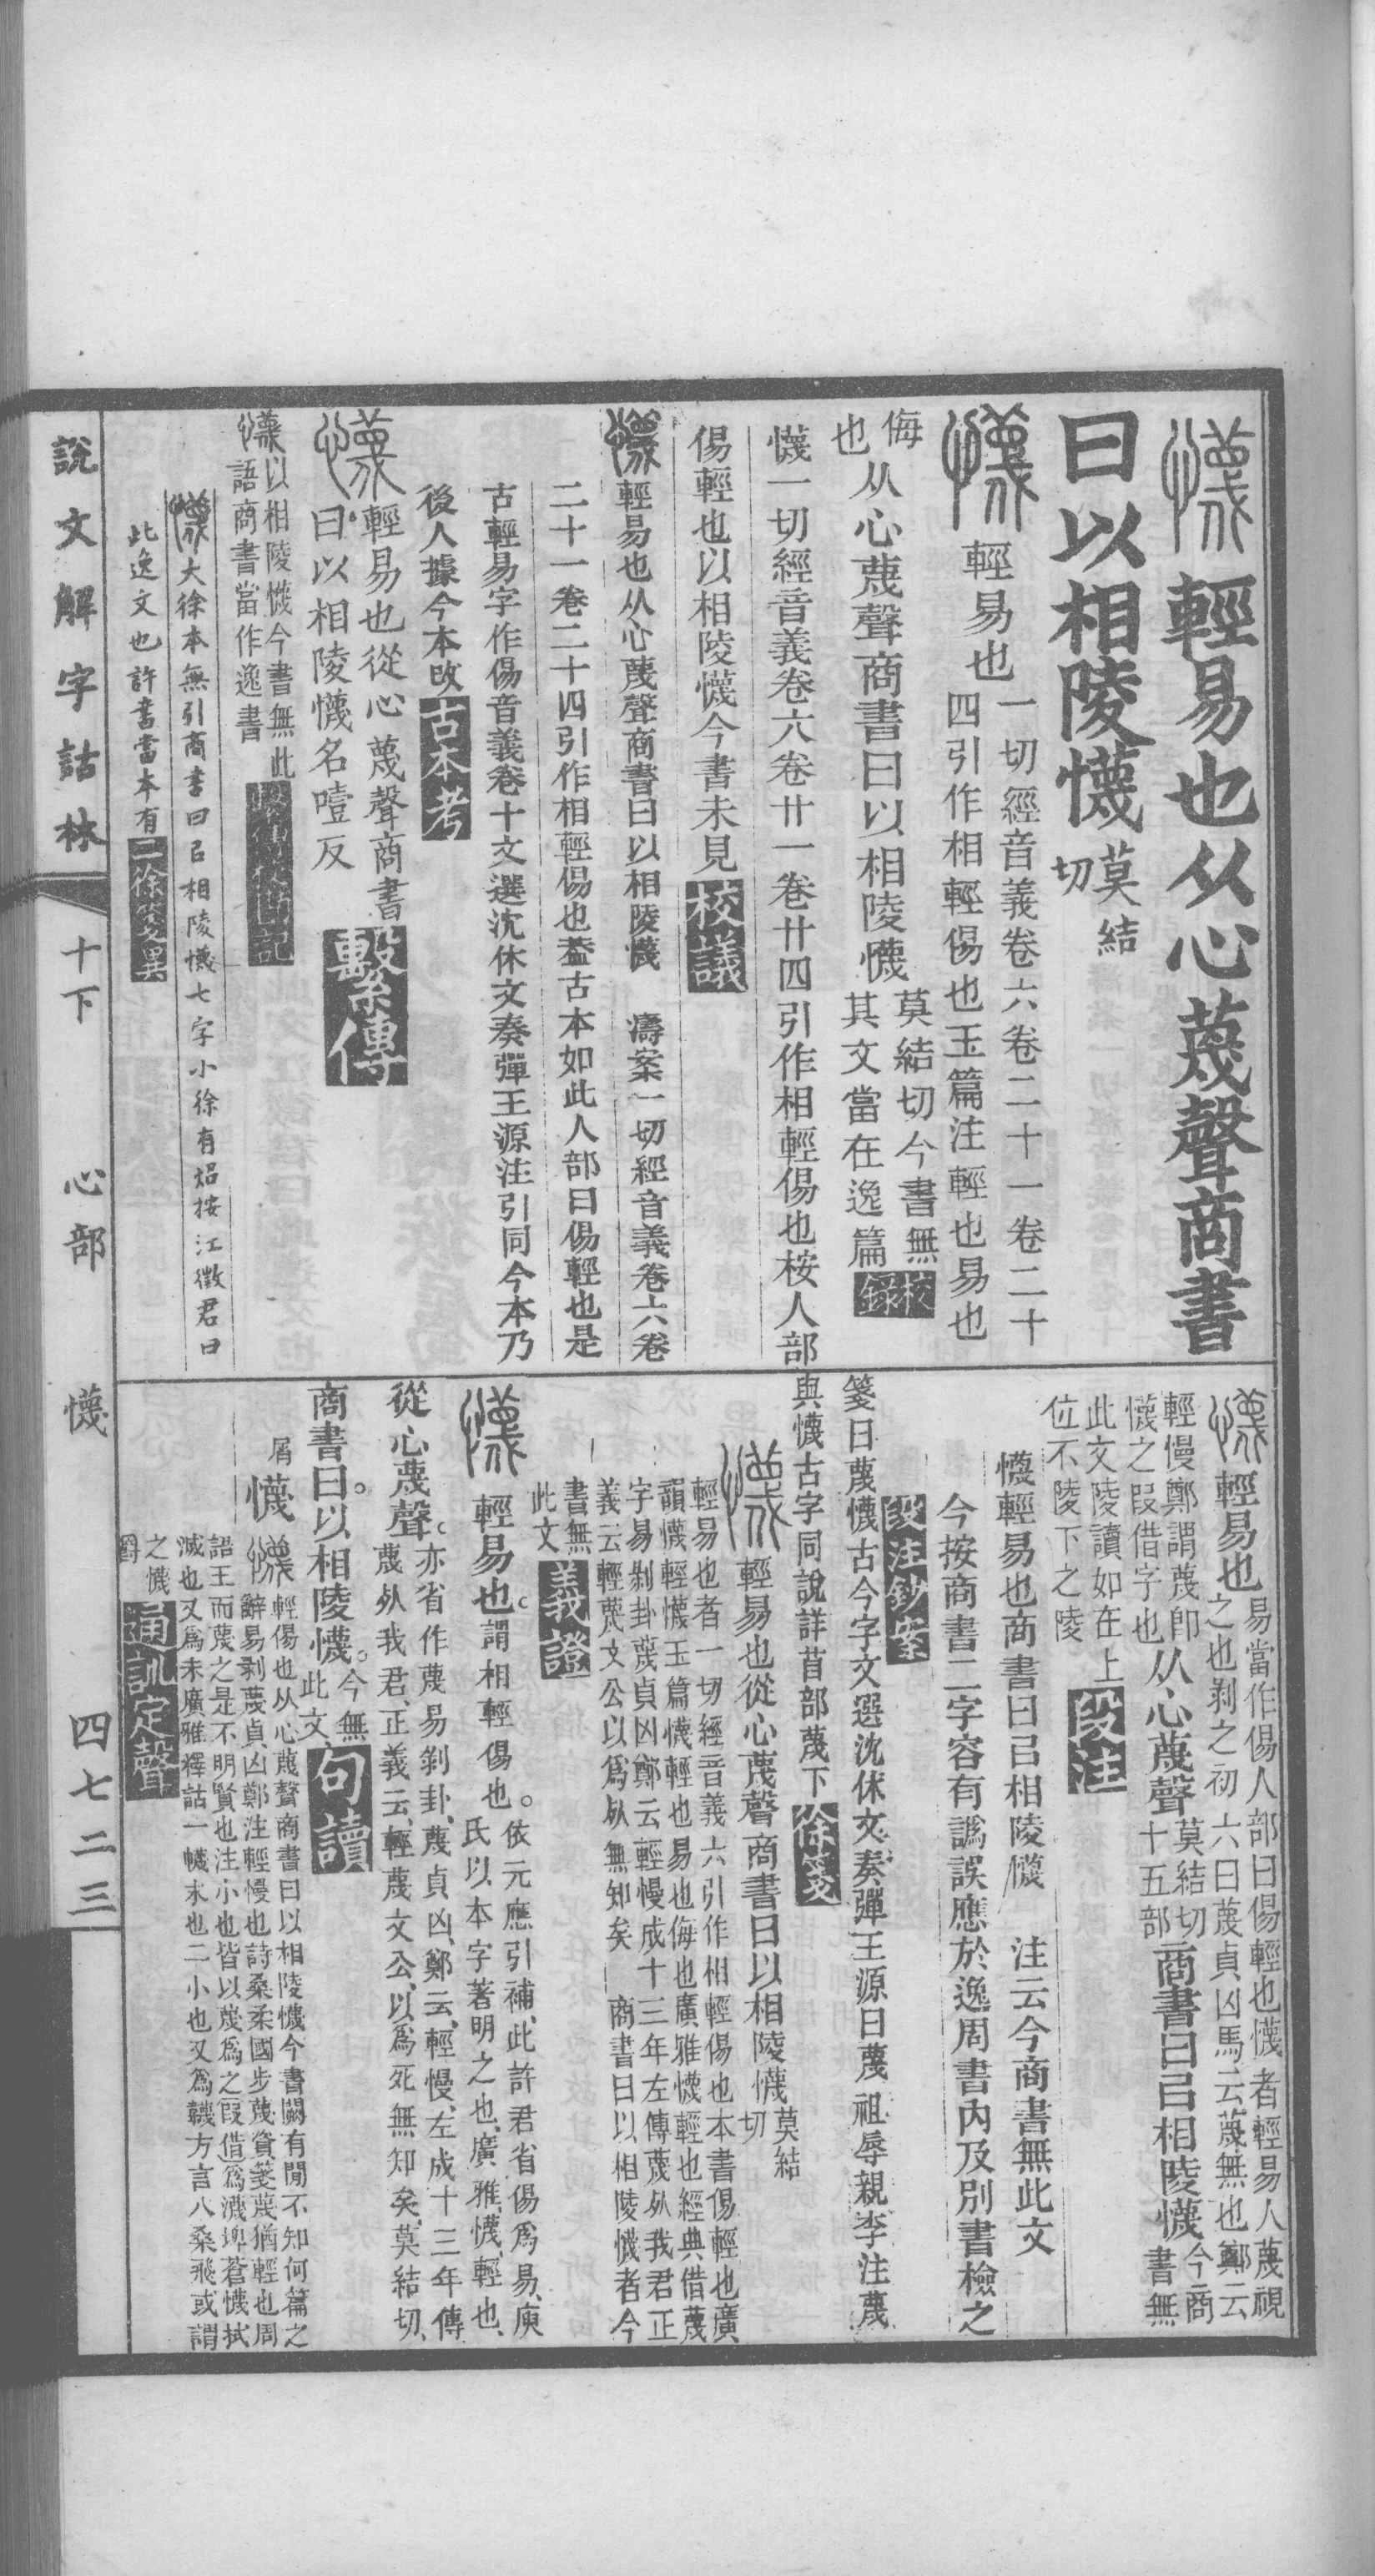 懱 輕易也从心蔑聲商書
曰以相陵懱莫結切
懱 輕易也一切經音義卷六卷二十一卷二十
四引作相輕傷也玉篇注輕也易也
侮也从心蔑聲商書曰以相陵懱莫結切今書無其文當在逸篇校錄
懱一切經音義卷六卷廿一卷廿四引作相輕傷也桉人部
傷輕也以相陵懱今書未見校議
懱輕易也从心蔑聲商書曰以相陵懱 濤案一切經音義卷六卷
二十一卷二十四引作相輕傷也葢古本如此人部曰傷輕也是
古輕易字作傷音義卷十文選沈休文奏彈王源注引同今本乃
後人據今本改古本考
懱輕易也從心蔑聲商書
曰以相陵懱名噎反繫傳
懱以相陵懱今書無此
語商書當作逸書繫傳校勘記
懱大徐本無引商書曰㠯相陵懱七字小徐有炤按江徵君曰
此逸文也許書當本有二徐箋異
懱輕易也易當作傷人部曰傷輕也懱者輕易人蔑視
之也剥之初六曰蔑貞凶馬云蔑無也鄭云
輕慢鄭謂蔑卽
懱之叚借字也从心蔑聲莫結切十五部商書曰㠯相陵懱今商書無
此文陵讀如在上
位不陵下之陵段注
懱輕易也商書曰㠯相陵懱 注云今商書無此文
今按商書二字容有譌誤應於逸周書內及別書檢之
段注鈔案
箋曰蔑懱古今字文選沈休文奏彈王源曰蔑祖辱親李注蔑
與懱古字同說詳苜部蔑下徐箋
懱輕易也從心蔑聲商書曰以相陵懱莫結切
輕易也者一切經音義六引作相輕傷也本書傷輕也廣
韻懱輕懱玉篇懱輕也易也侮也廣雅懱輕也經典借蔑
字易剝卦蔑貞凶鄭云輕慢成十三年左傳蔑㱙我君正
義云輕蔑文公以爲㱙無知矣 商書曰以相陵懱者今
書無
此文義證
懱輕易也謂相輕傷也。依元應引補、此許君省傷爲易、庾
氏以本字著明之也、廣雅、懱、輕也、
從心蔑聲。亦省作蔑易剝卦、蔑貞凶、鄭云、輕慢、左成十三年傳
蔑㱙我君、正義云、輕蔑文公、以爲死無知矣、莫結切、
商書曰。以相陵懱。今無此文、句讀
屑 懱懱輕傷也从心蔑聲商書曰以相陵懱今書闕有閒不知何篇之
辭易剥蔑貞凶鄭注輕慢也詩桑柔國步蔑資箋蔑猶輕也周
語王而蔑之是不明賢也注小也皆以蔑爲之叚借爲瀎埤蒼懱拭
滅也又爲末廣雅釋詁一懱末也二小也又爲韈方言八桑飛或謂
之懱
爵通訓定聲
說文解字詁林 十下 心部 懱 四七二三